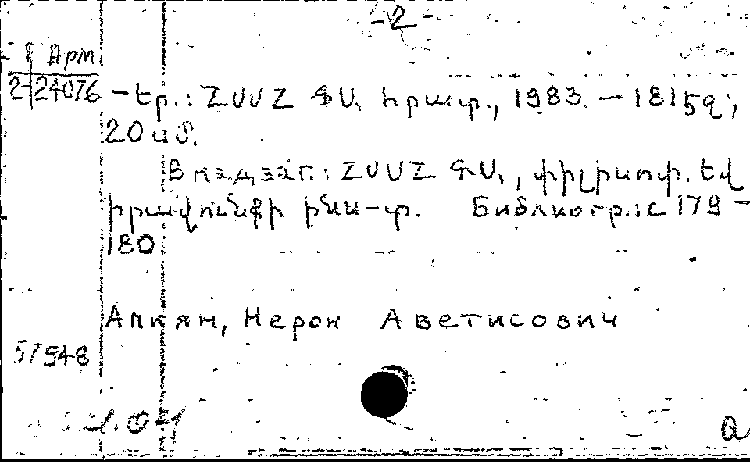 -2-
Арм
2-24076
- Եր.: ՀՍՍՀ ԳԱ հրատ., 1983. - 181 էջ;
20 սմ.
В надзаг.: ՀՍՍՀ ԳԱ, փիլիսոփ. եվ
իրավունքի ինս-տ. Библиогр.: с 179-
180
Алкян, Нерон Аветисович
57548